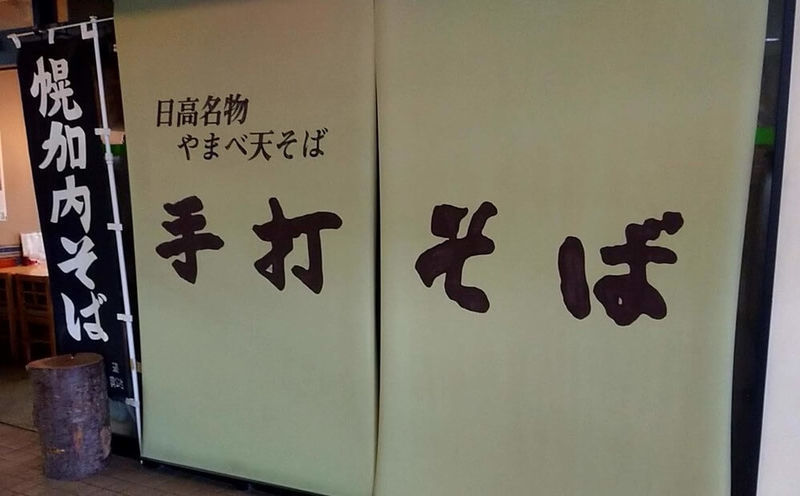 幌加内そば
日高名物
やまべ天そば
手打そば